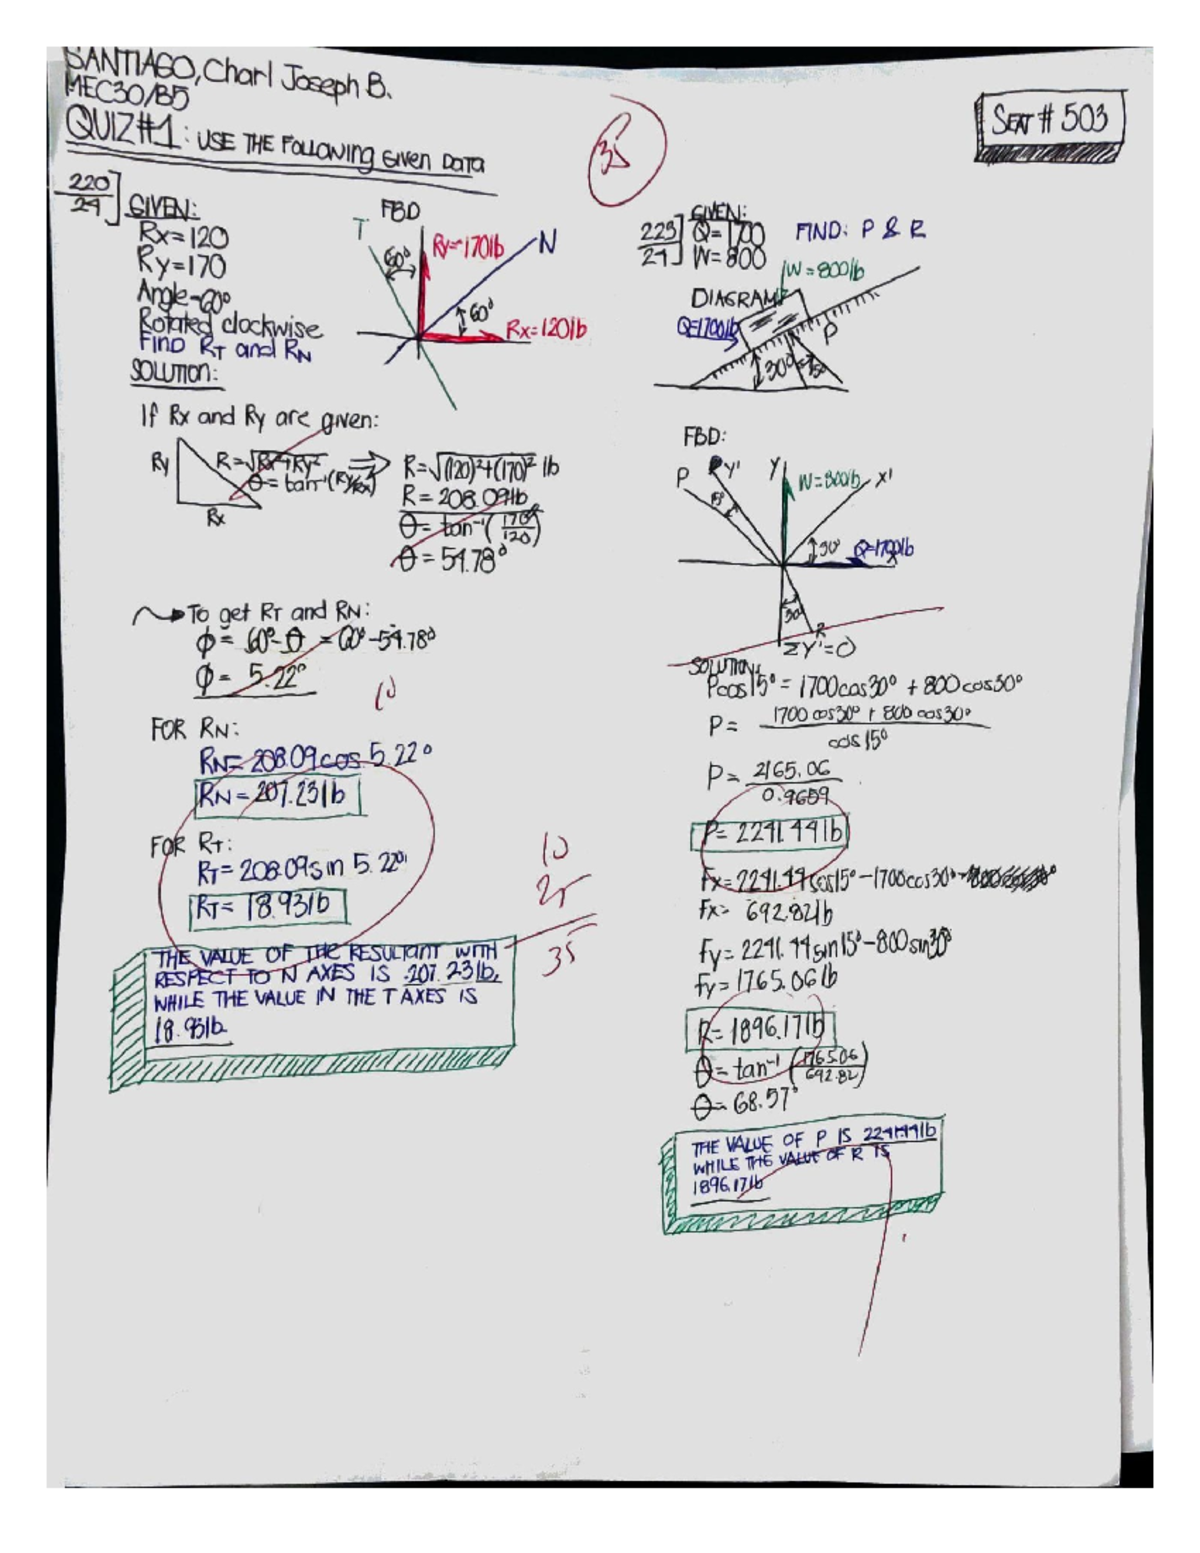 SANTIAGO, Charl Joseph B.
MEC30/B5
QUIZ#1: USE THE FOLLOWING GIVEN DATA
SEAT # 503
35
220
24]
GIVEN:
Rx=120
Ry=170
Angle=60°
Rotated clockwise
FIND RT and RN
SOLUTION:
FBD
T
60°
Ry=170lb
N
60°
Rx=120lb
If Rx and Ry are given:
Ry
Rx
R=√Rx²+Ry²
θ=tan⁻¹(Ry/Rx)
R=√(120)²+(170)² lb
R=208.09lb
θ=tan⁻¹(170/120)
θ=54.78°
To get RT and RN:
ϕ= 60°-θ = 60°-54.78°
ϕ= 5.22°
10
FOR RN:
RN=208.09cos 5.22°
RN=207.23lb
FOR RT:
RT=208.09sin 5.22°
RT= 18.93lb
10
25
35
THE VALUE OF THE RESULTANT WITH
RESPECT TO N AXES IS 207.23lb,
WHILE THE VALUE IN THE T AXES IS
18.93lb
223
24]
GIVEN:
Q=1700
W=800
FIND: P & R
DIAGRAM
W=800lb
Q=1700lb
P
30°
15°
FBD:
P
Y'
Y
W=800lb
X'
15°
30°
Q=1700lb
X
30°
R
ΣY'=0
SOLUTION:
Pcos15°=1700cos30°+800cos30°
P= 1700cos30°+800cos30°
cos15°
P= 2165.06
0.9659
P=2241.44lb
Fx=2241.44cos15°-1700cos30°
Fx= 692.82lb
Fy=2241.44sin15°-800sin30°
Fy=1765.06lb
R=1896.17lb
θ=tan⁻¹(1765.06/692.82)
θ=68.57°
THE VALUE OF P IS 2241.44lb
WHILE THE VALUE OF R IS
1896.17lb